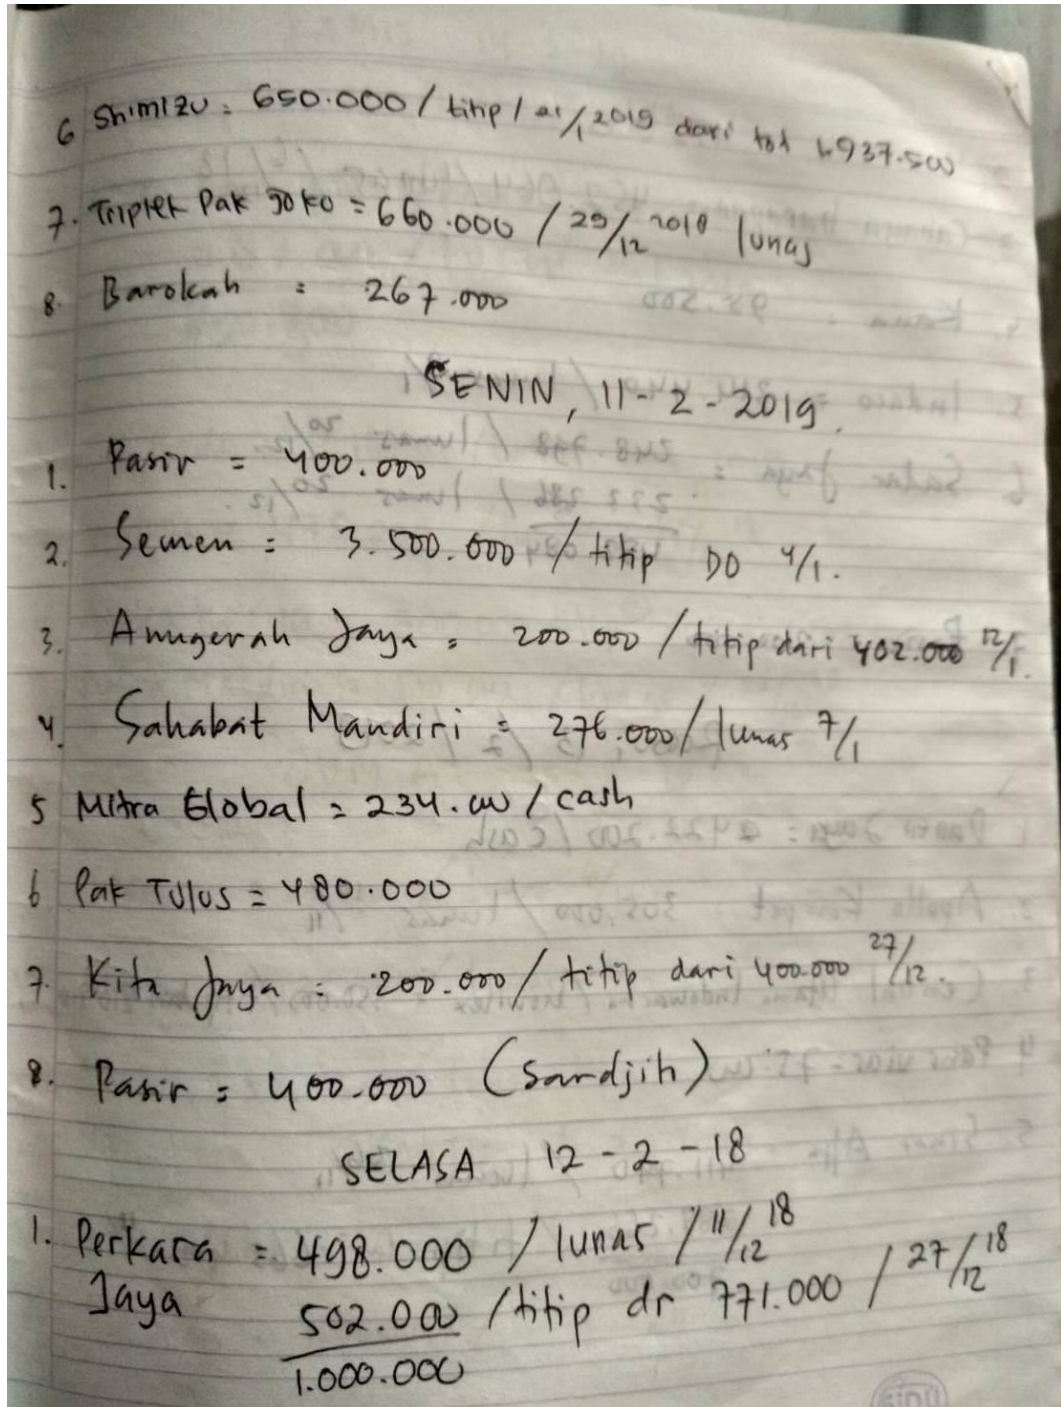 6 Shimizu = 650.000 / titip / 21/1 2019 dari tot 937.500
7. Triplek Pak Joko = 660.000 / 29/12 2018 lunas
8. Barokah = 267.000
SENIN, 11-2-2019.
1. Pasir = 400.000
2. Semen = 3.500.000 / titip DO 4/1.
3. Anugerah Jaya = 200.000 / titip dari 402.000 12/1.
4. Sahabat Mandiri = 276.000 / lunas 7/1
5 Mitra Global = 234.000 / cash
6 Pak Tulus = 480.000
7. Kita Jaya = 200.000 / titip dari 400.000 27/12.
8. Pasir = 400.000 (Sardjih)
SELASA 12-2-18
1. Perkara = 498.000 / lunas / 11/12 18
Jaya 502.000 / titip dr 771.000 / 27/12 18
1.000.000